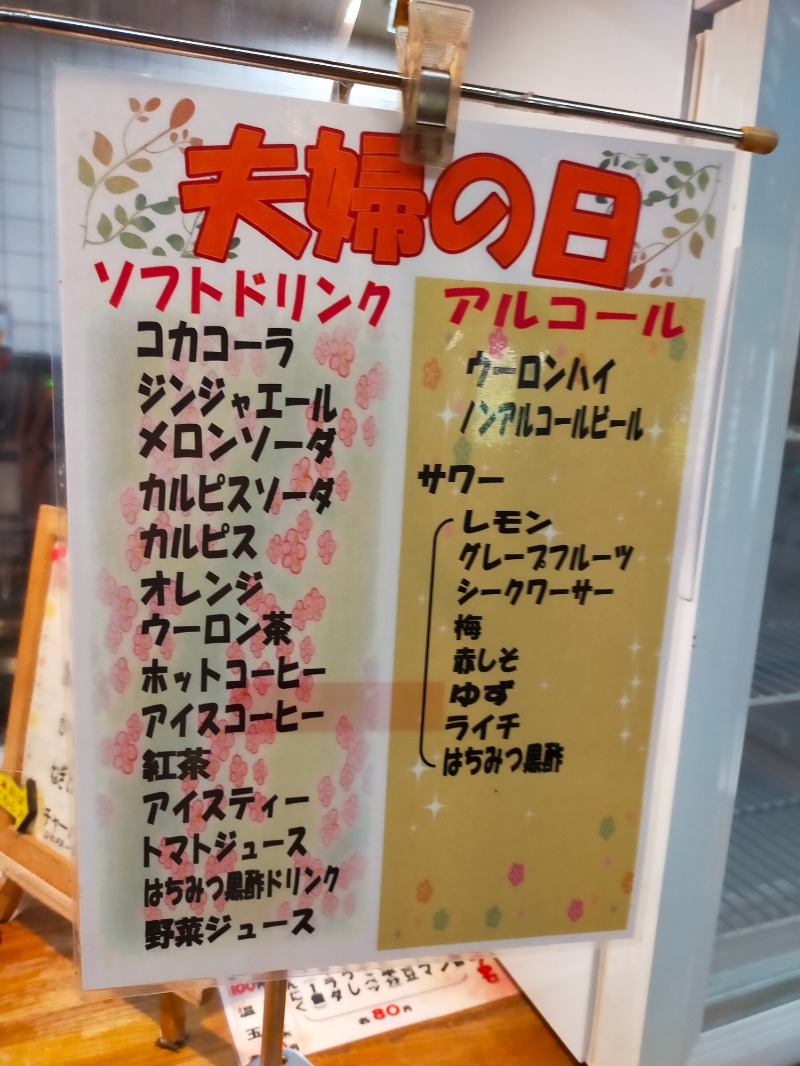 夫婦の日
ソフトドリンク
コカコーラ
ジンジャエール
メロンソーダ
カルピスソーダ
カルピス
オレンジ
ウーロン茶
ホットコーヒー
アイスコーヒー
紅茶
アイスティー
トマトジュース
はちみつ黒酢ドリンク
野菜ジュース
アルコール
ウーロンハイ
ノンアルコールビール
サワー
レモン
グレープフルーツ
シークワーサー
梅
赤しそ
ゆず
ライチ
はちみつ黒酢
各80円